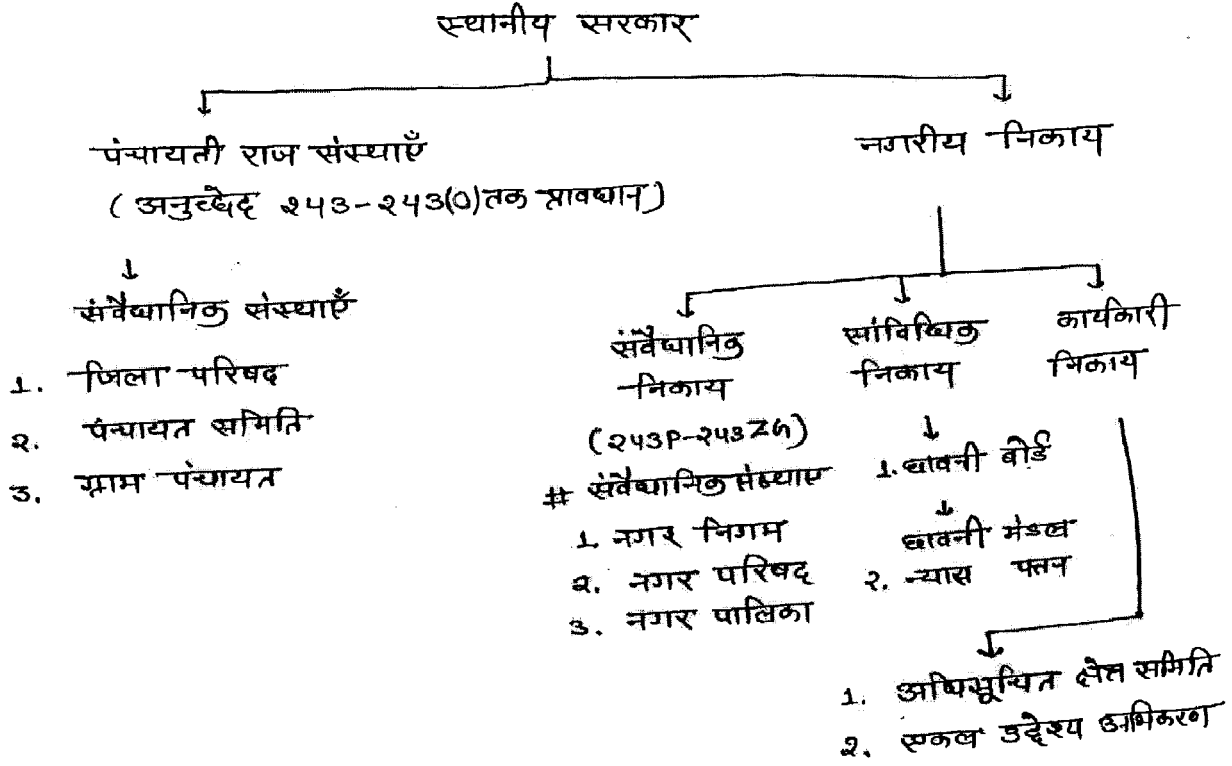 स्थानीय सरकार
पंचायती राज संस्थाएँ
(अनुच्छेद 243-243(0) तक प्रावधान)
संवैधानिक संस्थाएँ
1. जिला परिषद
2. पंचायत समिति
3. ग्राम पंचायत
नगरीय निकाय
संवैधानिक
निकाय
(243P-243ZG)
# संवैधानिक संस्थाए
1. नगर निगम
2. नगर परिषद्
3. नगर पालिका
सांविधिक
निकाय
1. छावनी बोर्ड
छावनी मंडल
2. न्यास पत्तन
कार्यकारी
निकाय
1. अधिसूचित क्षेत्र समिति
2. एकल उद्देश्य अभिकरण